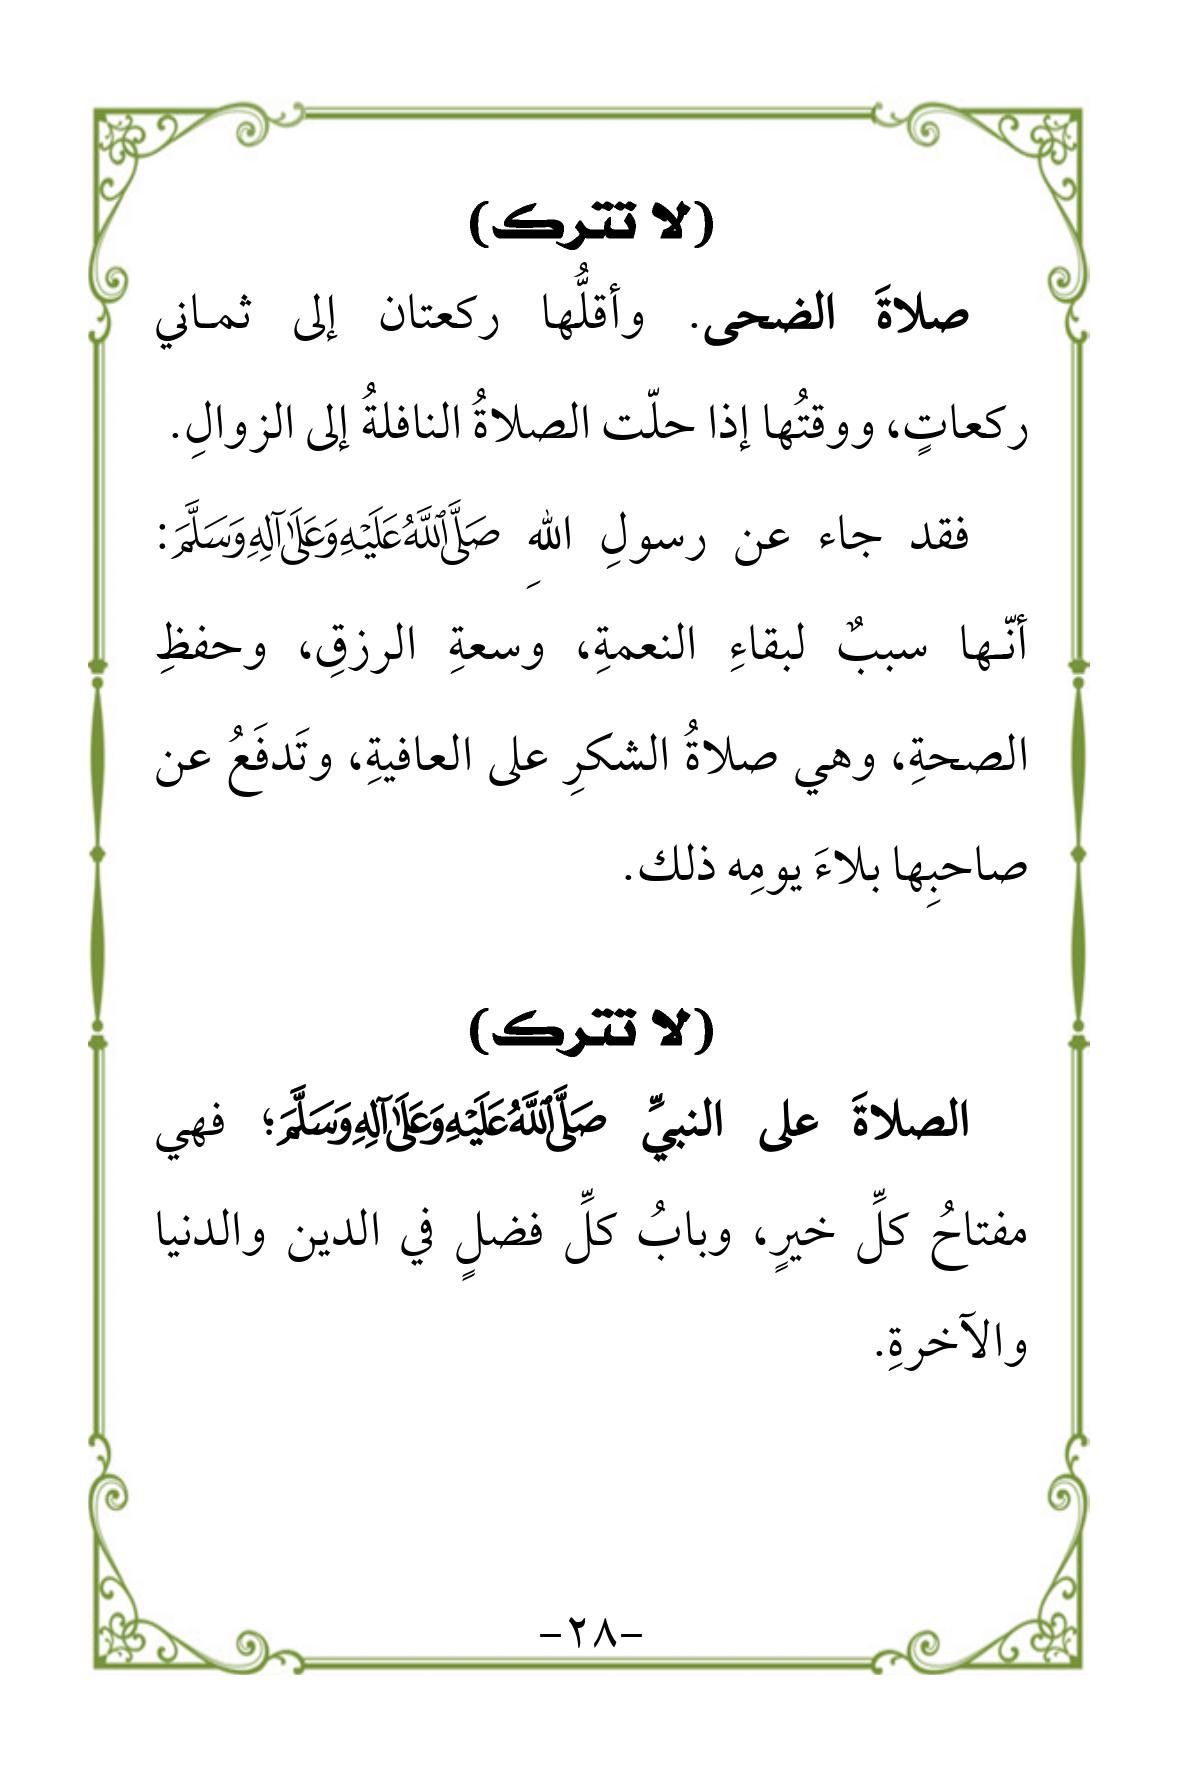 (لا تترك)
صلاةَ الضحى. وأقلُّها ركعتان إلى ثمـاني
ركعاتٍ، ووقتُها إذا حلّت الصلاةُ النافلةُ إلى الزوالِ.
فقد جاء عن رسولِ اللهِ صَلَّى اللَّهُ عَلَيْهِ وَعَلَىٰ آلِهِ وَسَلَّمَ:
أنّـها سببٌ لبقاءِ النعمةِ، وسعةِ الرزقِ، وحفظِ
الصحةِ، وهي صلاةُ الشكرِ على العافيةِ، وتَدفَعُ عن
صاحبِها بلاءَ يومِه ذلك.
(لا تترك)
الصلاةَ على النبيِّ صَلَّى اللَّهُ عَلَيْهِ وَعَلَىٰ آلِهِ وَسَلَّمَ؛ فهي
مفتاحُ كلِّ خيرٍ، وبابُ كلِّ فضلٍ في الدين والدنيا
والآخرةِ.
-٢٨-